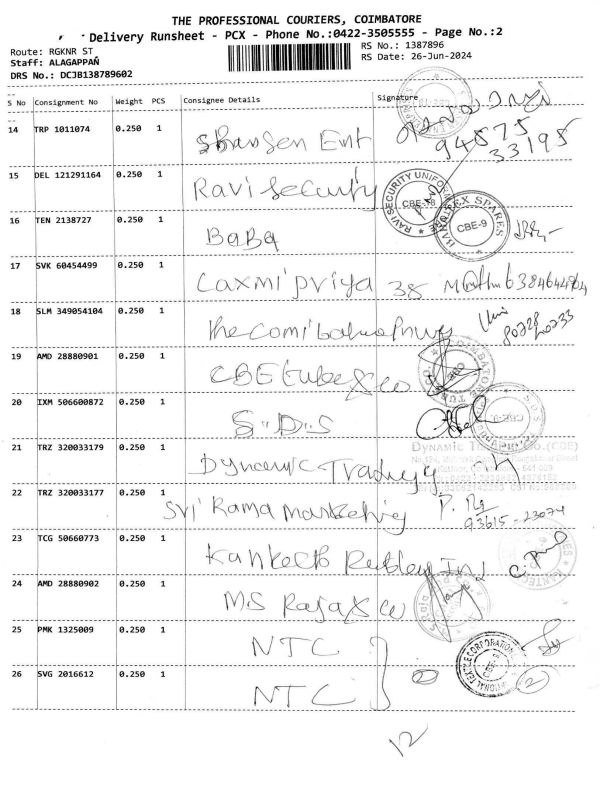 THE PROFESSIONAL COURIERS, COIMBATORE
Delivery Runsheet - PCX - Phone No.:0422-3505555 - Page No.:2
Route: RGKNR ST
RS No.: 1387896
Staff: ALAGAPPAN
RS Date: 26-Jun-2024
DRS No.: DCJB138789602
S No Consignment No Weight PCS Consignee Details Signature
14 TRP 1011074 0.250 1 Ent 94875
33195
15 DEL 121291164 0.250 1 Ravi Security RAVI SECURITY UNIFORM CBE-18
16 TEN 2138727 0.250 1 BaBa SPARES CBE-9
17 SVK 60454499 0.250 1 Laxmi priya 38
18 SLM 349054104 0.250 1 The 80228
20233
19 AMD 28880901 0.250 1 CBE tube & co
20 IXM 506600872 0.250 1 S.D.S
21 TRZ 320033179 0.250 1 Dynamic Trading DYNAMIC CO.(CBE)
22 TRZ 320033177 0.250 1 Sri Rama Marketing 93615-23074
23 TCG 50660773 0.250 1 Ind
24 AMD 28880902 0.250 1 MS Raja & co
25 PMK 1325009 0.250 1 NTC TEXTILE CORPORATION
26 SVG 2016612 0.250 1 NTC 2
12